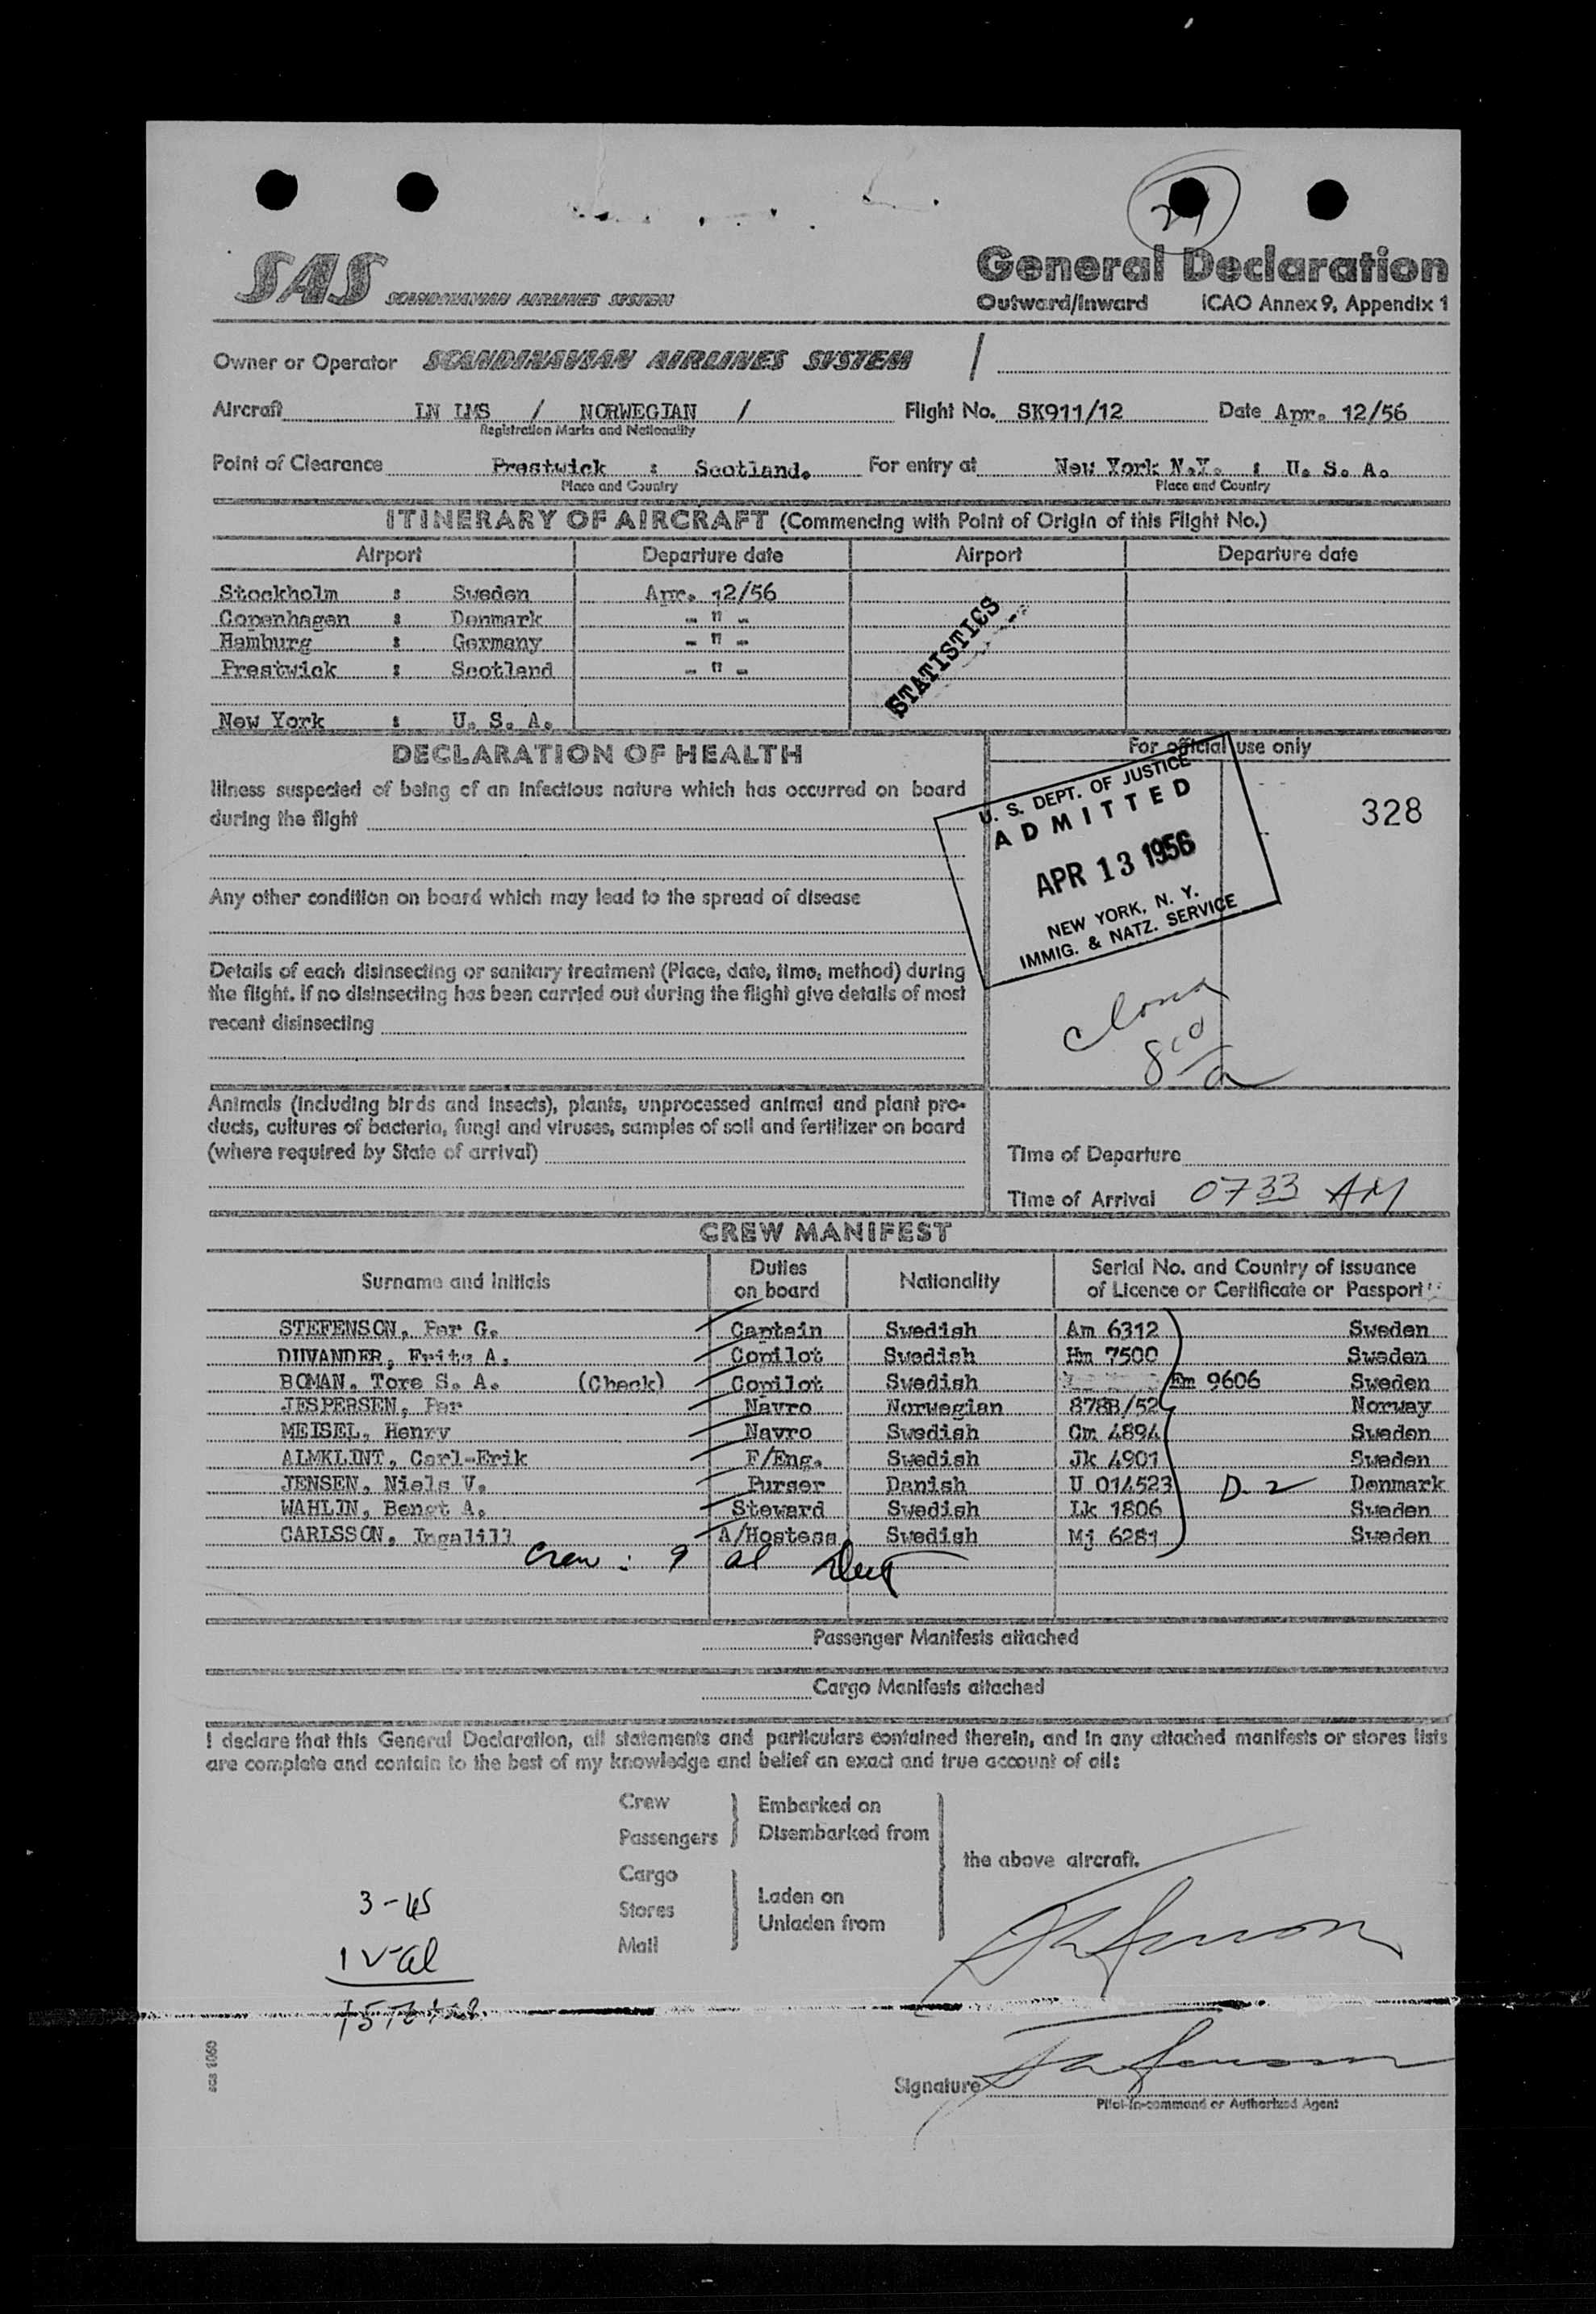 SAS SCANDINAVIAN AIRLINES SYSTEM
General Declaration
Outward/Inward ICAO Annex 9, Appendix 1
Owner or Operator SCANDINAVIAN AIRLINES SYSTEM /
Aircraft LN LMS / NORWEGIAN / Flight No. SK911/12 Date Apr. 12/56
Registration Marks and Nationality
Point of Clearance Prestwick : Scotland. For entry at New York N.Y. : U. S. A.
Place and Country Place and Country
ITINERARY OF AIRCRAFT (Commencing with Point of Origin of this Flight No.)
Airport Departure date Airport Departure date
Stockholm : Sweden Apr. 12/56
Copenhagen : Denmark - " -
Hamburg : Germany - " -
Prestwick : Scotland - " -
New York : U. S. A.
STATISTICS
DECLARATION OF HEALTH
Illness suspected of being of an infectious nature which has occurred on board
during the flight
Any other condition on board which may lead to the spread of disease
Details of each disinsecting or sanitary treatment (Place, date, time, method) during
the flight. If no disinsecting has been carried out during the flight give details of most
recent disinsecting
Animals (including birds and insects), plants, unprocessed animal and plant pro-
ducts, cultures of bacteria, fungi and viruses, samples of soil and fertilizer on board
(where required by State of arrival)
For official use only
328
U. S. DEPT. OF JUSTICE
ADMITTED
APR 13 1956
NEW YORK, N. Y.
IMMIG. & NATZ. SERVICE
Time of Departure
Time of Arrival 0733 AM
CREW MANIFEST
Surname and Initials Duties on board Nationality Serial No. and Country of Issuance of Licence or Certificate or Passport
STEFENSON, Per G. Captain Swedish Am 6312 Sweden
DUVANDER, Fritz A. Copilot Swedish Hm 7500 Sweden
BOMAN, Tore S. A. (Check) Copilot Swedish Em 9606 Sweden
JESPERSEN, Per Navro Norwegian 878B/52 Norway
MEISEL, Henry Navro Swedish Cm 4894 Sweden
ALMKLINT, Carl-Erik F/Eng. Swedish Jk 4901 Sweden
JENSEN, Niels V. Purser Danish U 014523 D-2 Denmark
WAHLIN, Bengt A. Steward Swedish Lk 1806 Sweden
CARLSSON, Ingalill A/Hostess Swedish Mj 6281 Sweden
Crew : 9 al
Passenger Manifests attached
Cargo Manifests attached
I declare that this General Declaration, all statements and particulars contained therein, and in any attached manifests or stores lists
are complete and contain to the best of my knowledge and belief an exact and true account of all:
Crew
Passengers
Cargo
Stores
Mail
Embarked on
Disembarked from
Laden on
Unladen from
the above aircraft.
Signature
Pilot-in-command or Authorized Agent
sas 1060